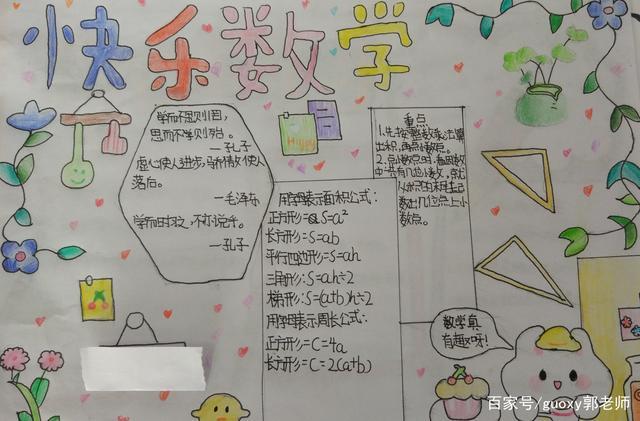 快乐数学
学而不思则罔，
思而不学则殆。
—孔子
虚心使人进步，骄傲使人
落后。
—毛泽东
学而时习之，不亦说乎。
—孔子
Happy
重点
1.先按整数乘法算
出积，再点小数点。
2.点小数点时，看因数
中一共有几位小数，就
从积的右边起
数出几位点上小
数点。
用字母表示面积公式：
正方形=S=a²
长方形=S=ab
平行四边形=S=ah
三角形:S=ah÷2
梯形:S=(a+b)h÷2
用字母表示周长公式:
正方形=C=4a
长方形=C=2(a+b)
数学真
有趣呀!
百家号/guoxy郭老师